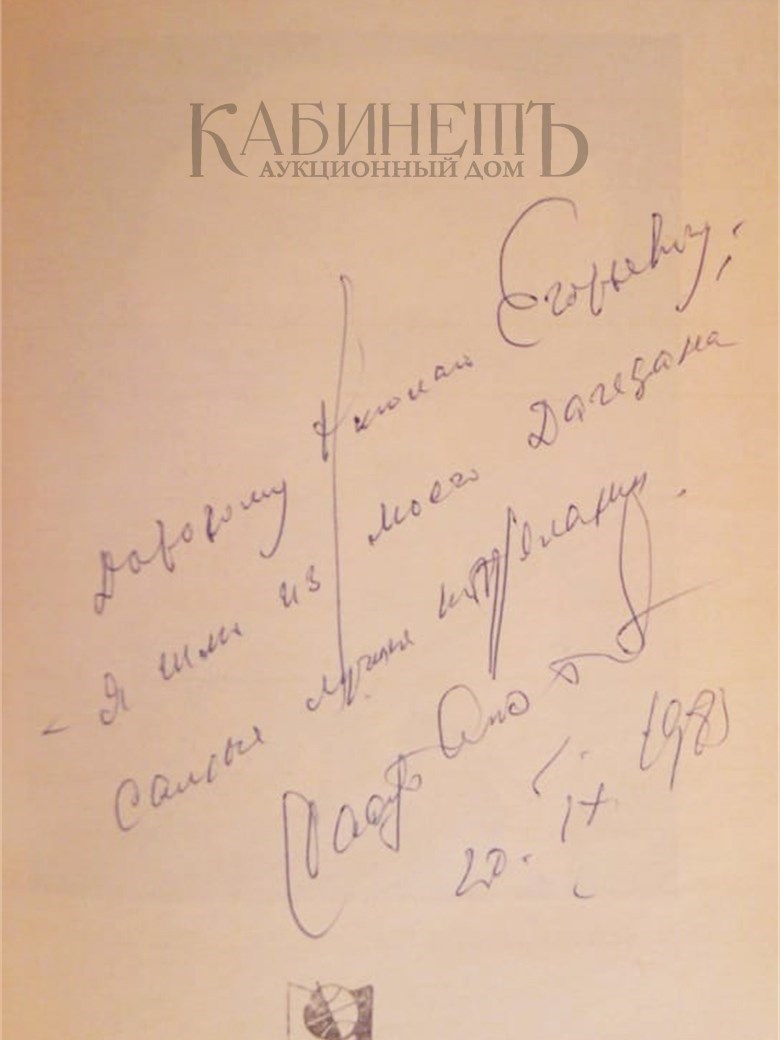 КАБИНЕТЪ
АУКЦИОННЫЙ ДОМ
Дорогому Николаю Егорьевичу,
- Я шлю из моего Дагестана
самые лучшие пожелания.
20. IX 198